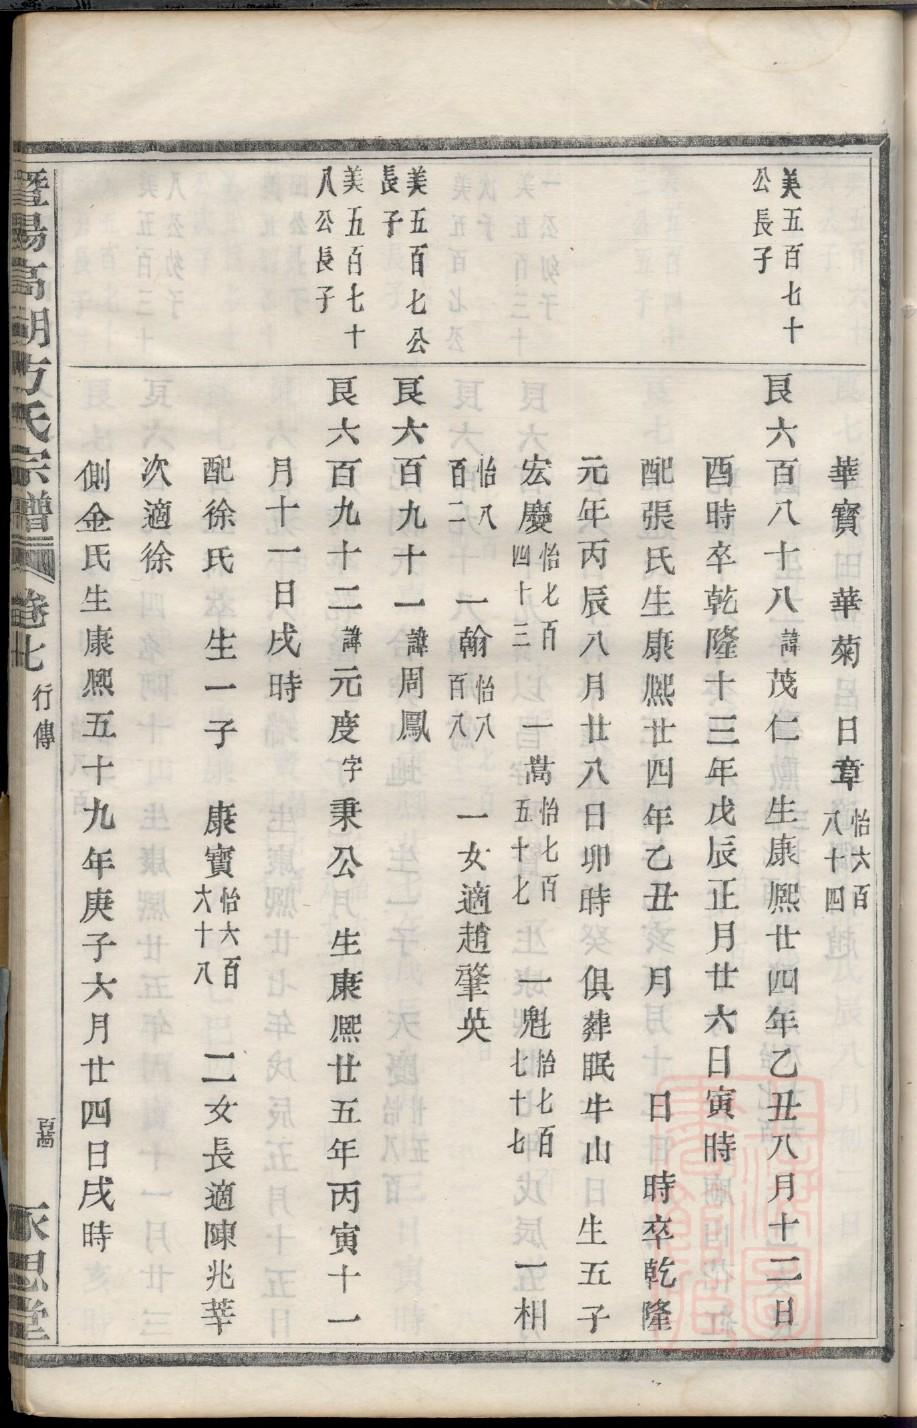 華寶 華菊 日章怡六百八十四
美五百七十公長子
艮六百八十八諱茂仁生康熙廿四年乙丑八月十二日
酉時卒乾隆十三年戊辰正月廿六日寅時
配張氏生康熙廿四年乙丑 月 日 時卒乾隆
元年丙辰八月廿八日卯時 俱葬眠牛山 生五子
宏慶怡七百四十三 一萬怡七百五十七 一魁怡七百七十七 一相
怡八百二 一翰怡八百八 一女適趙肇英
美五百七公長子
艮六百九十一諱周鳳
美五百七十八公長子
艮六百九十二諱元度字秉公月生康熙廿五年丙寅十一
月十一日戌時
配徐氏 生一子 康寶怡六百六十八 二女長適陳兆莘
次適徐
側金氏生康熙五十九年庚子六月廿四日戌時
暨陽高湖方氏宗譜 卷七 行傳 永思堂